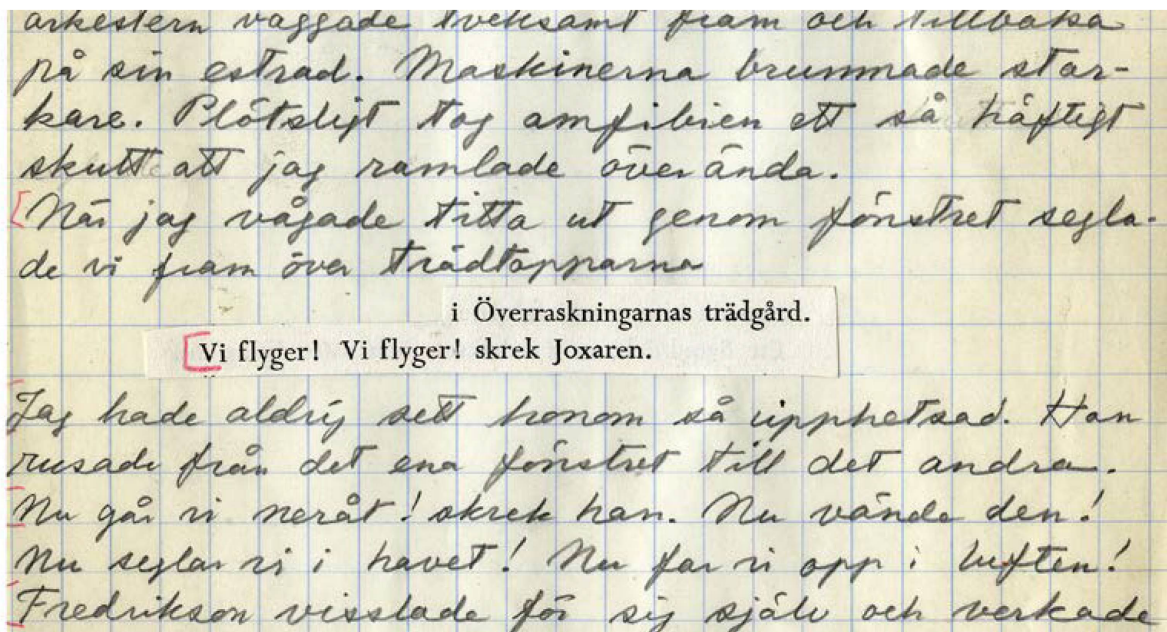 orkestern vaggade tveksamt fram och tillbaka
på sin estrad. Maskinerna brummade star-
kare. Plötsligt tog amfibien ett så häftigt
skutt att jag ramlade överända.
När jag vågade titta ut genom fönstret segla-
de vi fram över trädtopparna
i Överraskningarnas trädgård.
Vi flyger! Vi flyger! skrek Joxaren.
Jag hade aldrig sett honom så upphetsad. Han
rusade från det ena fönstret till det andra.
Nu går vi neråt! skrek han. Nu vände den!
Nu seglar vi i havet! Nu far vi opp i luften!
Fredrikson visslade för sig själv och verkade